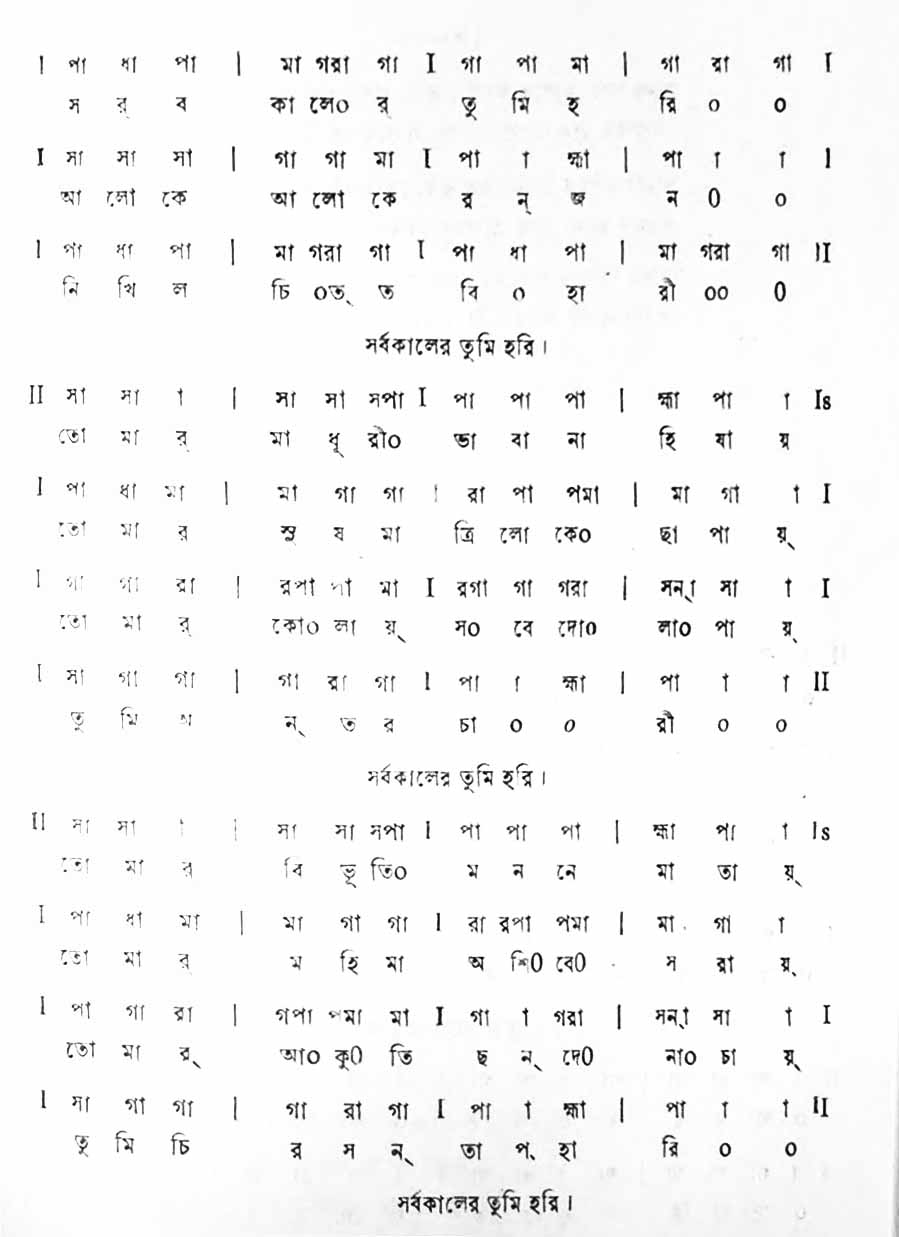 I পা ধা পা | মা গরা গা I গা পা মা | গা রা গা I
স র্ ব কা লে০ র্ তু মি হ রি ০ ০
I সা সা সা | গা গা মা I পা া হ্মা | পা া া I
আ লো কে আ লো কে র ন্ জ ন 0 ০
I পা ধা পা | মা গরা গা I পা ধা পা | মা গরা গা II
নি খি ল চি ০ত্ ত বি ০ হা রী ০০ 0
সর্বকালের তুমি হরি।
II সা সা া | সা সা সপা I পা পা পা | হ্মা পা া Is
তো মা র্ মা ধূ রী০ ভা বা না হি যা য়
I পা ধা মা | মা গা গা I রা পা পমা | মা গা া I
তো মা র সু ষ মা ত্রি লো কে০ ছা পা য়্
I গা গা রা | রপা পা মা I রগা গা গরা | সন্‌া সা া I
তো মা র্ কো০ লা য়্ স০ বে দো০ লা০ পা য়্
I সা গা গা | গা রা গা I পা া হ্মা | পা া া II
তু মি অ ন্ ত র চা ০ ০ রী ০ ০
সর্বকালের তুমি হরি।
II সা সা া | সা সা সপা I পা পা পা | হ্মা পা া Is
তো মা র বি ভূ তি০ ম ন নে মা তা য়্
I পা ধা মা | মা গা গা I রা রপা পমা | মা গা া
তো মা র্ ম হি মা অ শি0 বে0 স রা য়্
I পা গা রা | গপা পমা মা I গা া গরা | সন্‌া সা া I
তো মা র্ আ০ কু0 তি ছ ন্ দে0 না০ চা য়্
I সা গা গা | গা রা গা I পা া হ্মা | পা া া II
তু মি চি র স ন্ তা প. হা রি ০ ০
সর্বকালের তুমি হরি।